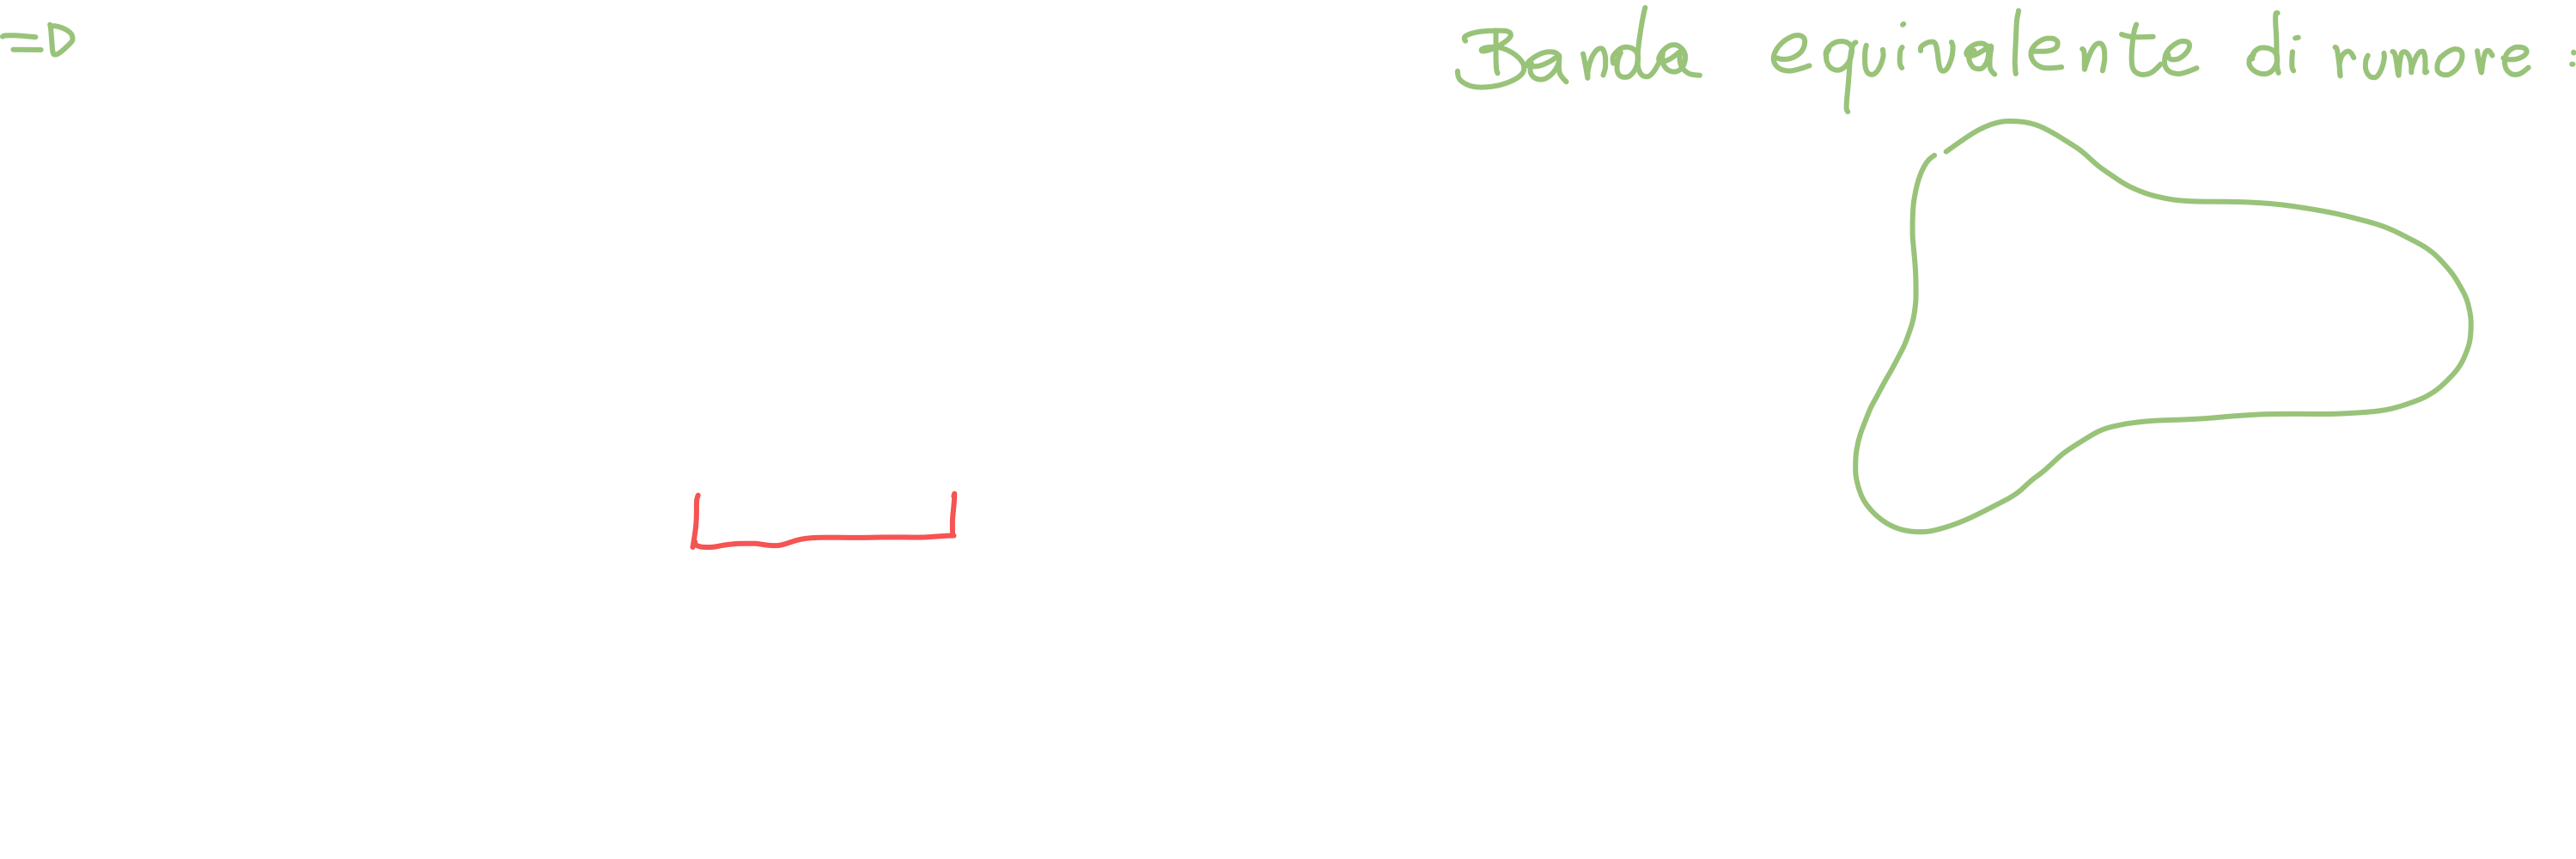 ⇒ Banda equivalente di rumore :